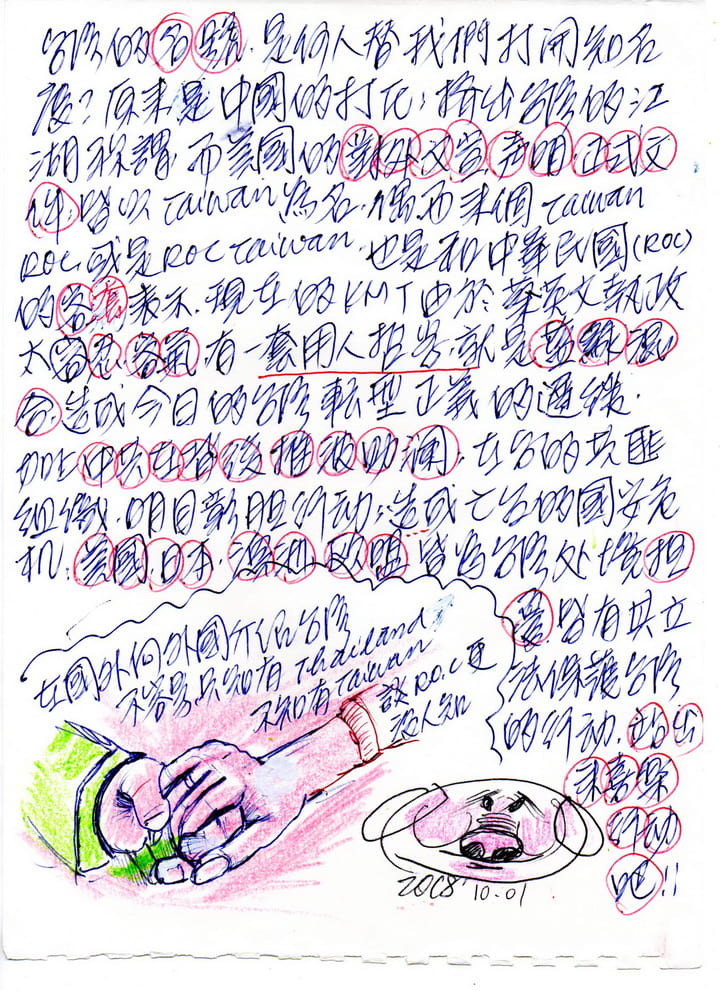 台灣的名號,是何人替我們打開知名
度?原來是中國的打压;擠出台灣的江
湖称謂,而美國的對外文宣,声明,正式文
件;皆以Taiwan為名.偶而來個Taiwan
ROC,或是ROC Taiwan.也是和中華民國(ROC)
的客套表示.現在的KMT由於蔡英文執政
太容忍,客氣,有一套用人招告,就是藍綠混
合,造成今日的台灣転型正義的遲緩.
加上中共在背後推波助瀾,在台的共匪
組織,明目彰胆行动;造成亡台的國安危
机;美國,日本,澳洲,欧盟皆為台灣处境担
憂,皆有共立
法保護台灣
的行动.站出
來吾黎
行动
吧!!
在國外向外國介紹台灣
不容易只知有Thailand
不知有Taiwan
談R.O.C更
沒人知
10.01